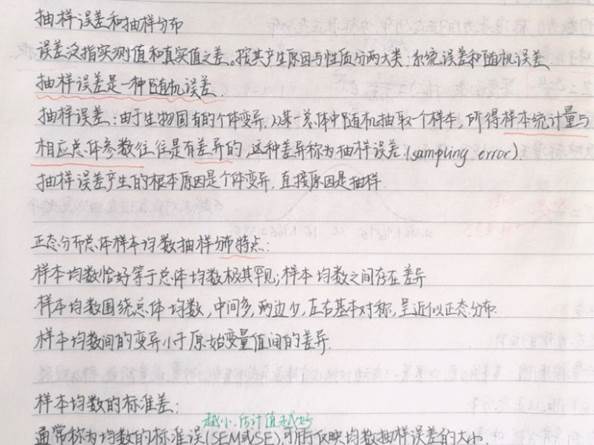 抽样误差和抽样分布
误差泛指实测值和真实值之差。按其产生原因与性质分两大类:系统误差和随机误差
抽样误差是一种随机误差.
抽样误差:由于生物固有的个体变异,从某一总体中随机抽取一个样本,所得样本统计量与
相应总体参数往往是有差异的,这种差异称为抽样误差.(sampling error)
抽样误差产生的根本原因是个体变异.直接原因是抽样.
正态分布总体样本均数抽样分布特点:
样本均数恰好等于总体均数极其罕见;样本均数之间存在差异
样本均数围绕总体均数,中间多,两边少,左右基本对称,呈近似正态分布.
样本均数间的变异小于原始变量值间的差异.
样本均数的标准差:
越小,估计值越
通常称为均数的标准误(SEM或SE),可用反映均数抽样误差的大小.